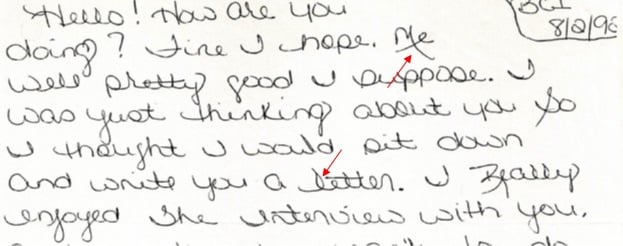 Hello! How are you
BCI
8/2/96
doing? Fine I hope. Me
well pretty good I suppose. I
was just thinking about you so
I thought I would sit down
and write you a letter. I Really
enjoyed the interview with you.